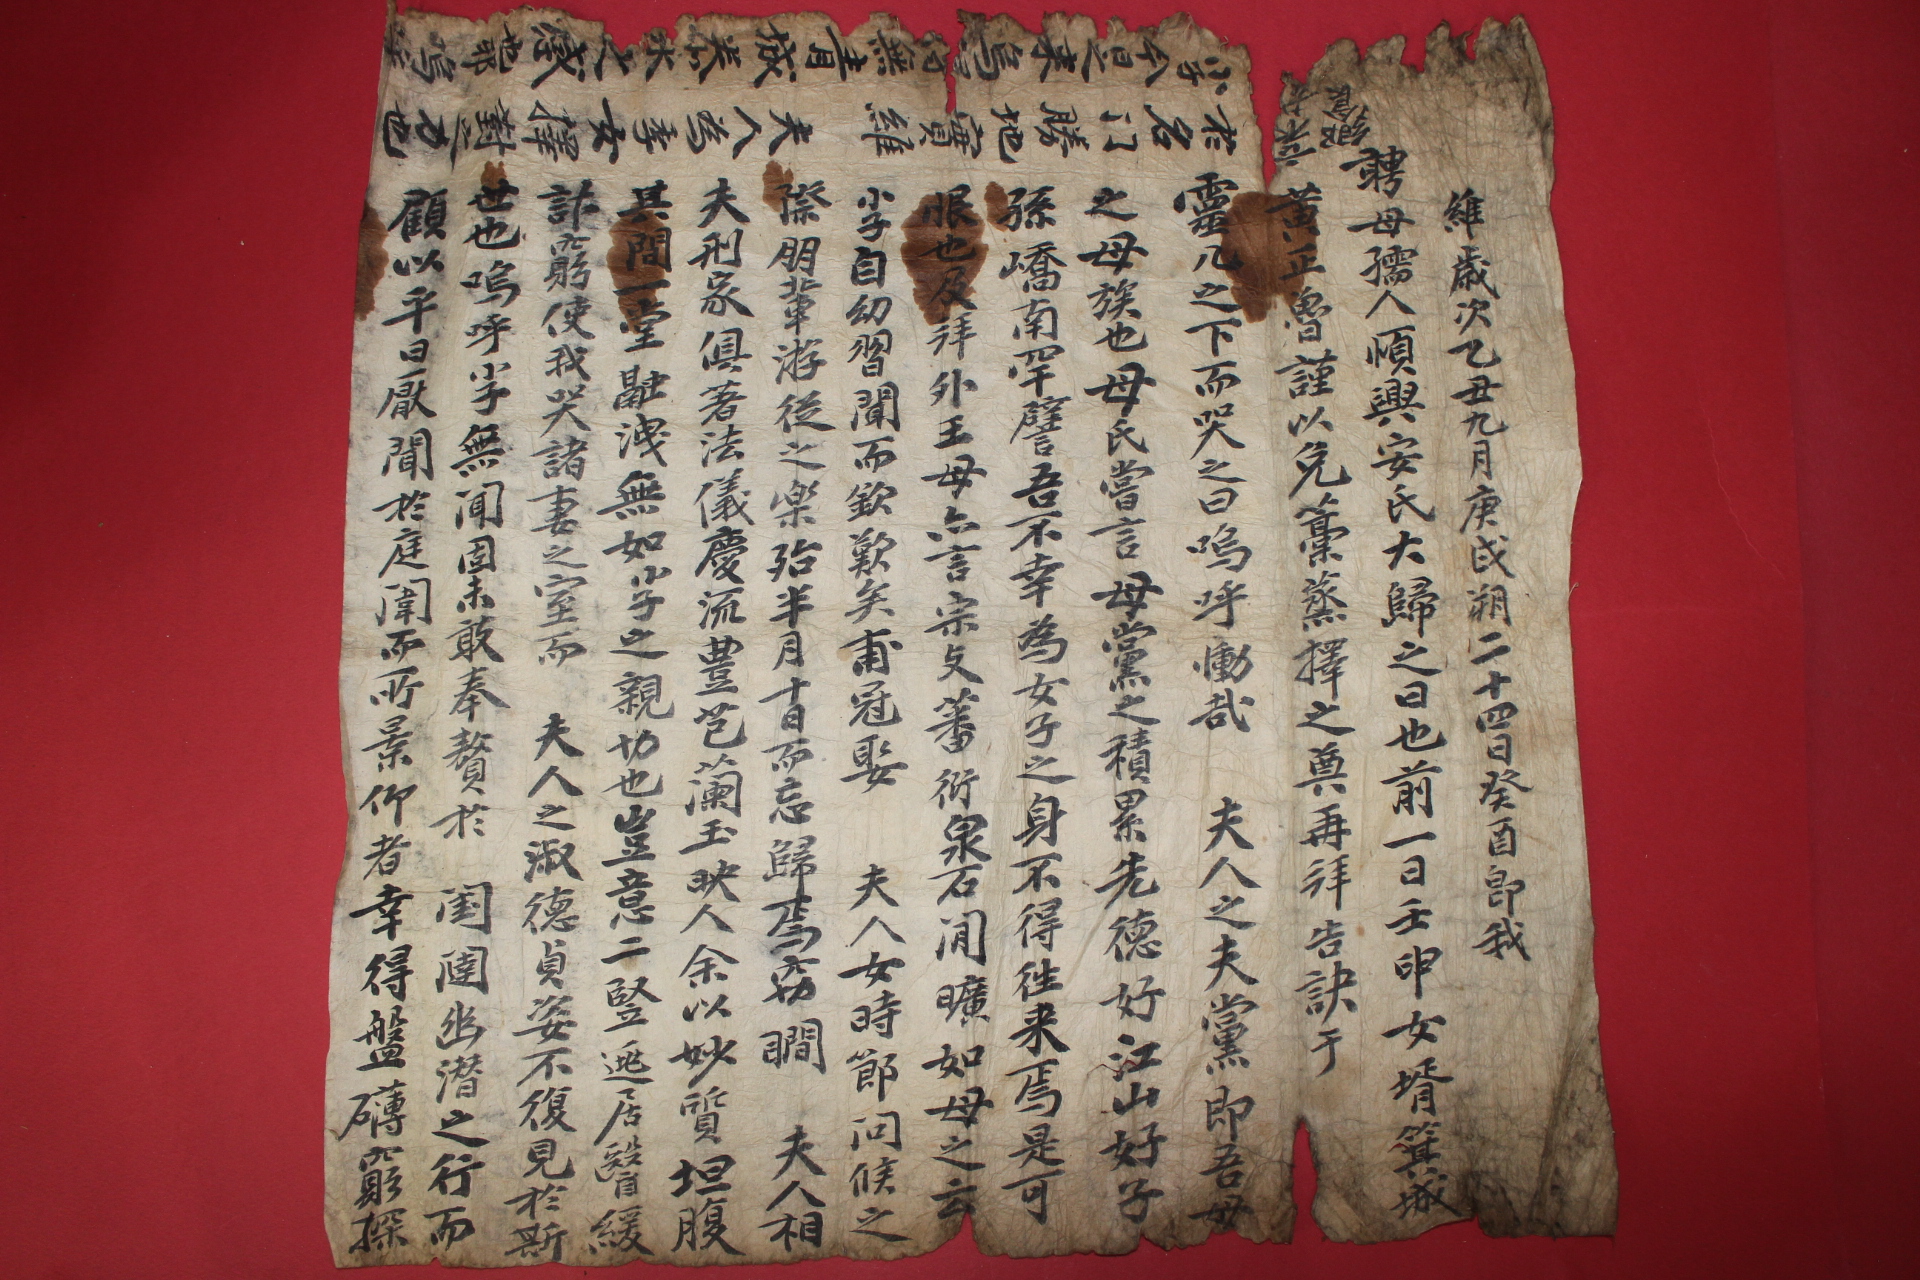 維歲次乙丑九月庚戌朔二十四日癸酉卽我
聘母孺人順興安氏大歸之日也前一日壬申女壻箕城
黃正魯謹以兔藁蒸擇之奠再拜告訣于
靈几之下而哭之曰嗚呼慟哉 夫人之夫黨卽吾母
之母族也母氏嘗言母黨之積累先德好江山好子
孫嶠南罕譬吾不幸為女子之身不得往来焉是可
恨也及拜外王母亦言宗支蕃衍泉石閒曠如母之云
小子自幼習聞而欽歎矣甫冠娶 夫人女時節問候之
際朋輩游從之樂殆半月十日而忘歸焉窃瞷 夫人相
夫刑家俱著法儀慶流豊芑蘭玉映人余以妙質坦腹
其間一堂融洩無如小子之親切也豈意二竪逃居醫緩
計窮使我哭諸妻之室而 夫人之淑德貞姿不復見於斯
世也嗚呼小子無聞固未敢奉贅於 閨閫幽潜之行而
顧以平日厭聞於庭闈而所景仰者幸得盤礴窮探
於名门勝地實維 夫人為季女擇對之力也
小子今日之来烏得無青城美水之感也耶嗚呼